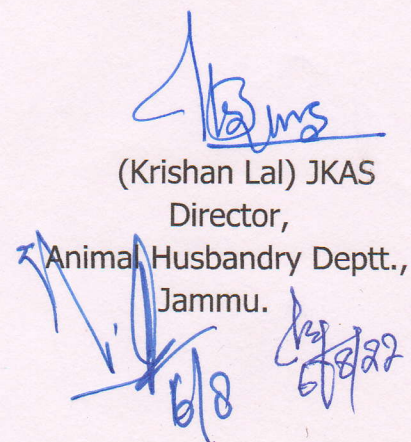 (Krishan Lal) JKAS
Director,
Animal Husbandry Deptt.,
Jammu.
6/8
6/8/22